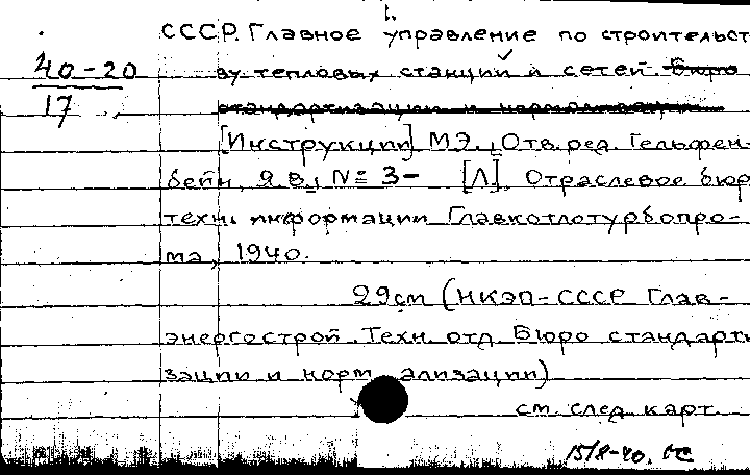 СССР. Главное управление по строительст
40-20
ву тепловых станций и сетей. Бюро
17
стандартизации и нормализации
[Инструкции] МЭ., Отв. ред. Гельфен-
бейн, Я.В., № 3- [Л]. Отраслевое бюр
техн. информации Главкотлотурбопро-
ма, 1940.
29см (НКЭП-СССР Глав-
энергострой. Техн. отд. Бюро стандарти
зации и нормализации)
см. след. карт.